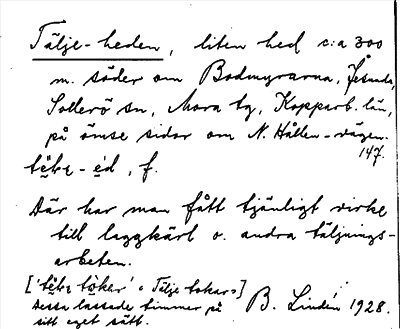 Tälje-heden, liten hed c:a 300
m. söder om Bodmyrarna,
Sollerö sn, Mora tg, Kopparb. län,
på ömse sidor om N. Hållen-vägen.
147.
f.
Där har man fått tjänligt virke
till laggkärl o. andra täljnings-
arbeten.
"Tälje tokar"]
Dessa lassade timmer på
sitt eget sätt.
B. Lindén 1928.